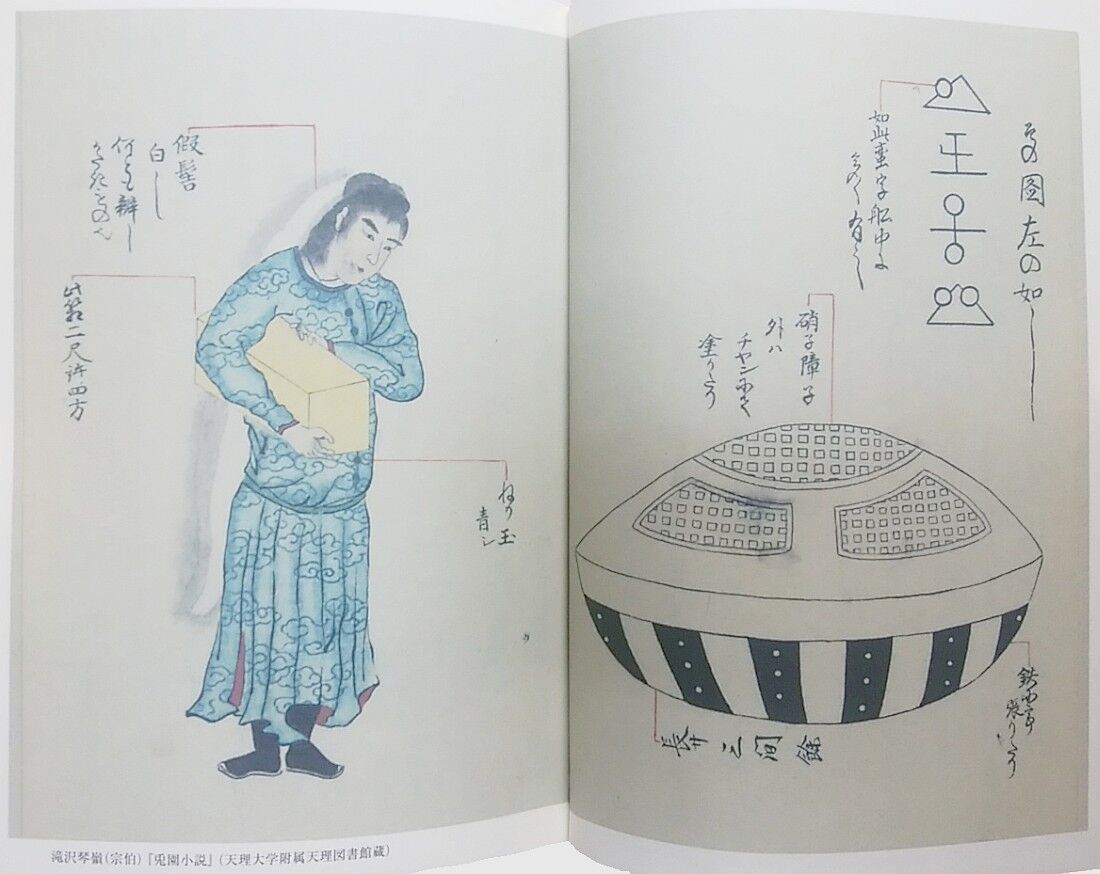 その圖左の如し
如此蠻字船中に
多く有之
硝子障子
外ハ
チヤンにて
塗りたり
鉄にて
張りたり
長サ三間餘
假髻
白し
何とも辨し
かたきものなり
此箱二尺許四方
ねり玉
青シ
滝沢琴嶺(宗伯)『兎園小説』(天理大学附属天理図書館蔵)